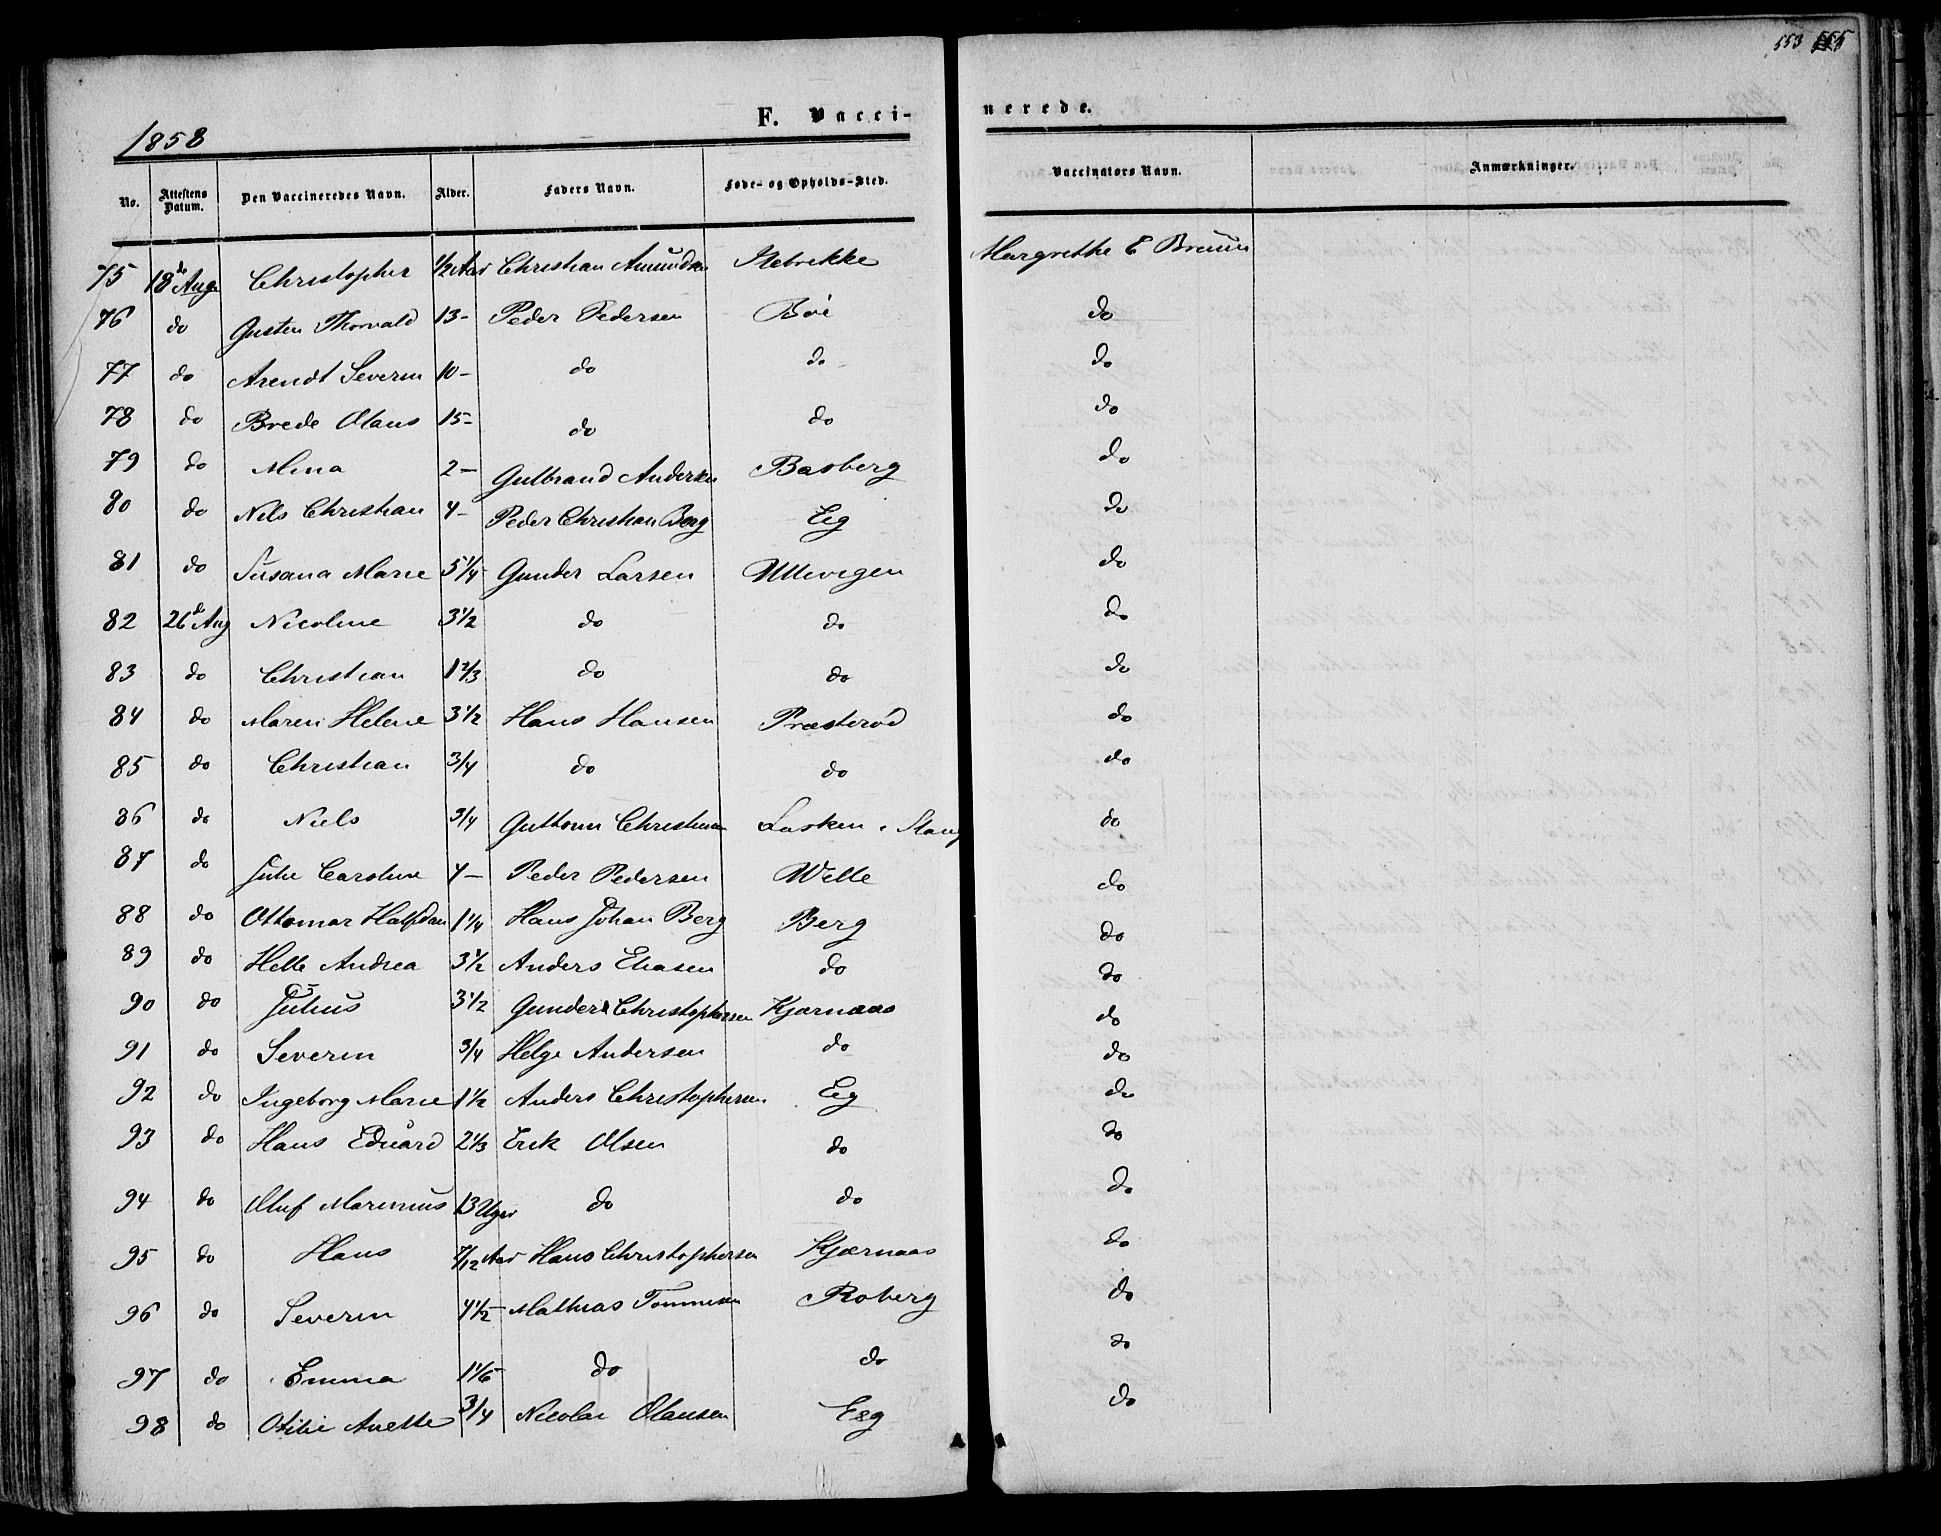 553 555
F. Vaccinerede.
1858
No. | Attestens Datum. | Den Vaccineredes Navn. | Alder. | Faders Navn. | Føde- og Opholds-Sted. | Vaccinators Navn. | Anmærkninger.
75 | 18de Aug | Christopher | 1/2 Aar | Christian Amundsen | | Margrethe E Bruun
76 | do | Gusten Thorvald | 13- | Peder Pedersen | Bøi | do
77 | do | Arendt Severin | 10- | do | do | do
78 | do | Brede Olaus | 15- | do | do | do
79 | do | Mina | 2- | Gulbrand Andersen | Basberg | do
80 | do | Nils Christian | 4- | Peder Christian Berg | Eig | do
81 | do | Susana Marie | 5 1/4 | Gunder Larsen | Ullevigen | do
82 | 26de Aug | Nicoline | 3 1/2 | do | do | do
83 | do | Christian | 1 2/3 | do | do | do
84 | do | Maren Helene | 3 1/2 | Hans Hansen | Præsterød | do
85 | do | Christian | 3/4 | do | do | do
86 | do | Niels | 3/4 | Guthorm Christiansen | Lasken i | do
87 | do | Julie Caroline | 4- | Peder Pedersen | Welle | do
88 | do | Ottomar Halfdan | 1 1/4 | Hans Johan Berg | Berg | do
89 | do | Helle Andrea | 3 1/2 | Anders Eliasen | do | do
90 | do | Julius | 3 1/2 | Gunder Christophersen | Kjærnaas | do
91 | do | Severin | 3/4 | Helge Andersen | do | do
92 | do | Ingeborg Marie | 1 1/2 | Anders Christophersen | Eig | do
93 | do | Hans Eduard | 2 1/3 | Erik Olsen | do | do
94 | do | Oluf Marinius | 13 Uger | do | do | do
95 | do | Hans | 7/12 Aar | Hans Christophersen | Kjærnaas | do
96 | do | Severin | 4 1/2 | Mathias Tommesen | Roberg | do
97 | do | Emma | 1 1/6 | do | do | do
98 | do | Otilie Anette | 3/4 | Nicolai Olausen | Eeg | do